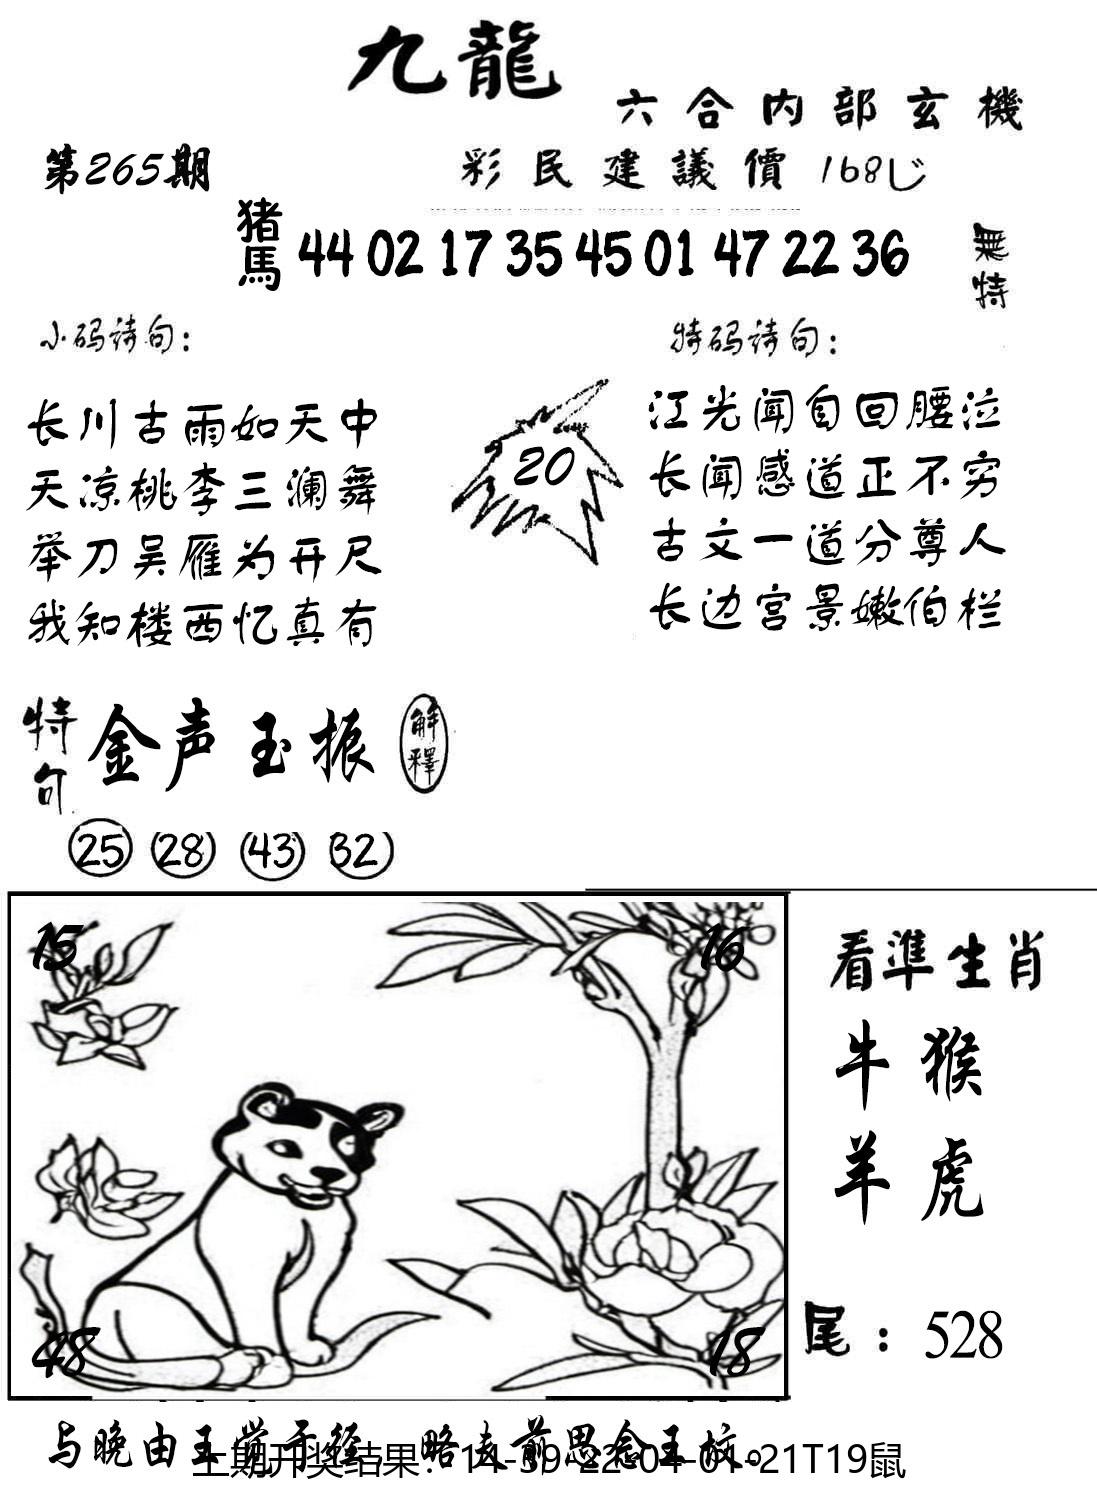 九龍
六合内部玄機
第265期
彩民建議價 168
猪馬 44 02 17 35 45 01 47 22 36
無特
小码诗句：
长川古雨如天中
天凉桃李三澜舞
举刀吴雁为开尺
我知楼西忆真有
20
特码诗句：
江光闻自回腰泣
长闻感道正不穷
古文一道分尊人
长边宫景嫩伯栏
特句 金声玉振 解釋
25 28 43 32
15
16
48
18
看準生肖
牛猴
羊虎
尾：528
与晚由王 略去前思念王
上期开奖结果：14-39-22-04-01-21T19鼠